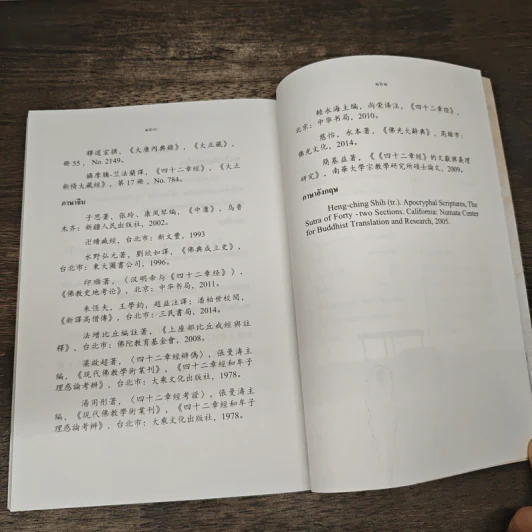 釋道宣撰,《大唐內典錄》,《大正藏》,
冊 55, No. 2149.
攝摩騰-竺法蘭譯,《四十二章經》,《大正
新脩大藏經》, 第 17 冊, No. 784.
ภาษาจีน
子思著, 张玲、康风琴编,《中庸》, 乌鲁
木齐: 新疆人民出版社, 2002.
卍續藏經, 台北市: 新文豐, 1993
水野弘元著, 劉欣如譯,《佛典成立史》,
台北市: 東大圖書公司, 1996.
印順著,〈汉明帝与《四十二章经》〉,
《佛教史地考论》, 北京: 中华书局, 2011。
朱恆夫、王學鈞、趙益注譯; 潘柏世校閱,
《新譯高僧傳》, 台北市: 三民書局, 2014。
法增比丘編註著,《上座部比丘戒經與註
釋》, 台北市: 佛陀教育基金會, 2008。
梁啟超著,〈四十二章經辨偽〉, 張曼濤主
編,《現代佛教學術叢刊》,《四十二章經和牟子
理惑論考辨》, 台北市: 大乘文化出版社, 1978。
湯用彤著,〈四十二章經考證〉, 張曼濤主
編,《現代佛教學術叢刊》,《四十二章經和牟子
理惑論考辨》, 台北市: 大乘文化出版社, 1978。
賴永海主編, 尚榮译注,《四十二章经》,
北京: 中华书局, 2010。
慈怡, 永本著,《佛光大辭典》, 高雄市:
佛光文化, 2014。
簡基益著,《《四十二章經》的文獻與義理
研究》, 南華大學宗教學研究所碩士論文, 2009。
ภาษาอังกฤษ
Heng-ching Shih (tr.). Apocryphal Scriptures, The
Sutra of Forty -two Sections. California: Numata Center
for Buddhist Translation and Research, 2005.